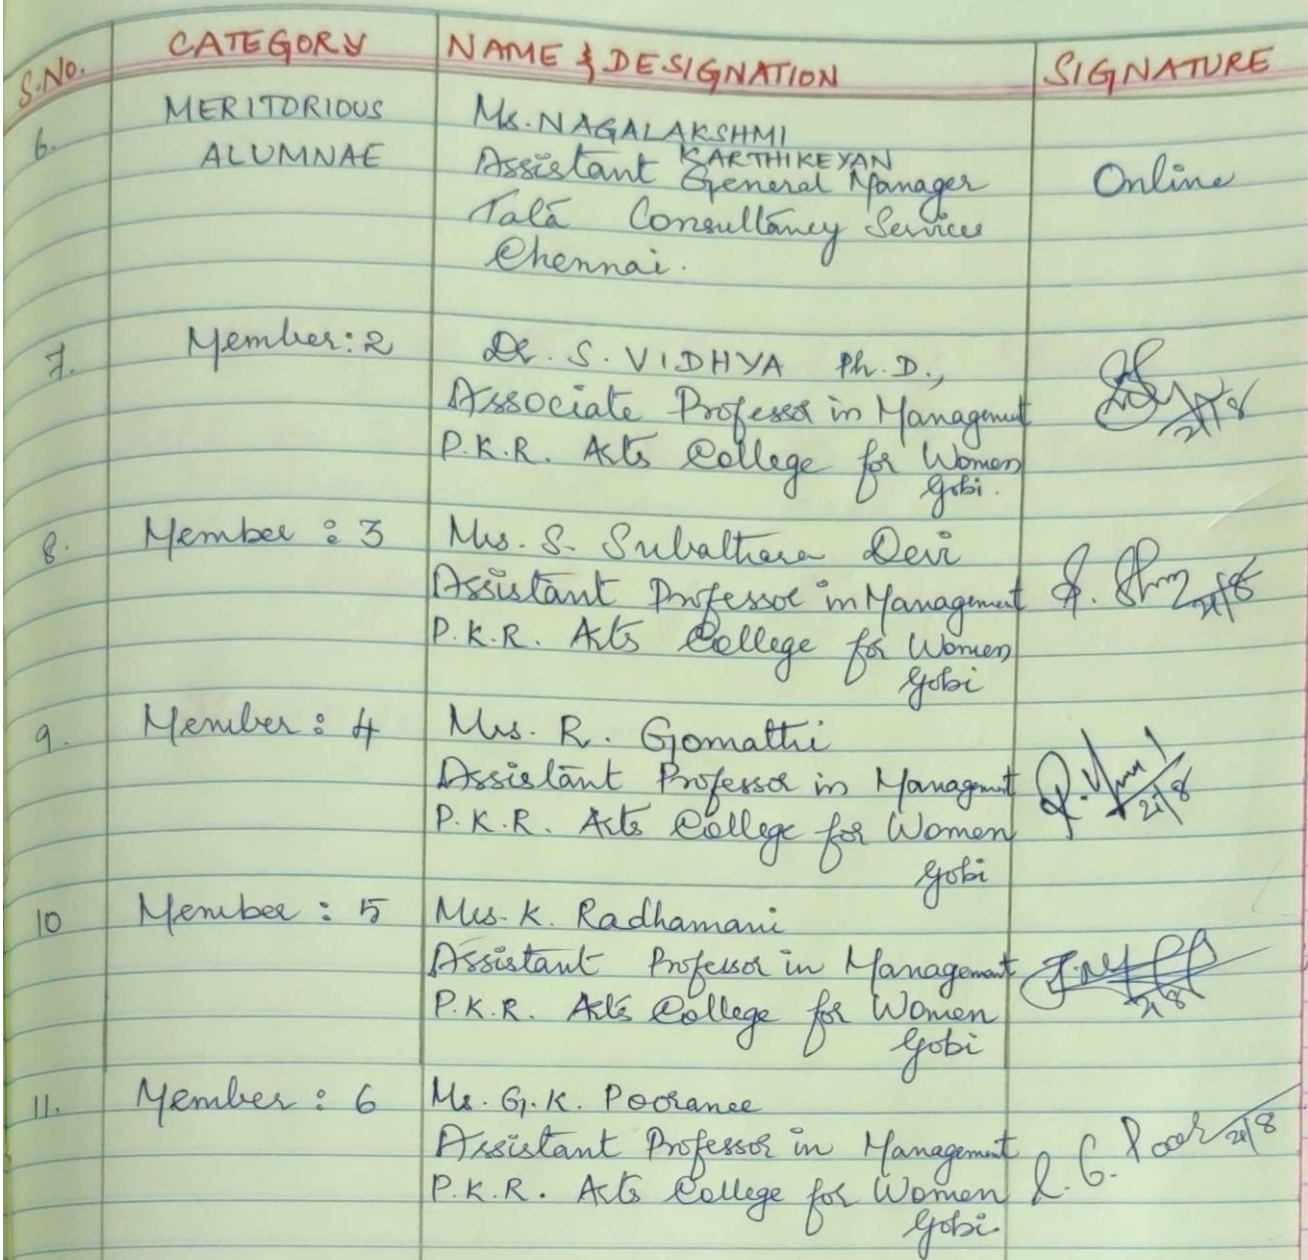 S.No. CATEGORY NAME & DESIGNATION SIGNATURE
6. MERITORIOUS Ms. NAGALAKSHMI
ALUMNAE KARTHIKEYAN
Assistant General Manager Online
Tata Consultancy Services
Chennai.
7. Member: 2 Dr. S. VIDHYA Ph.D.,
Associate Professor in Management
P.K.R. Arts College for Women
Gobi.
21/8
8. Member : 3 Mrs. S. Subalthara Devi
Assistant Professor in Management
21/8
P.K.R. Arts College for Women
Gobi
9. Member : 4 Mrs. R. Gomathi
Assistant Professor in Management
21/8
P.K.R. Arts College for Women
Gobi
10 Member : 5 Mrs. K. Radhamani
Assistant Professor in Management
P.K.R. Arts College for Women
21/8
Gobi
11. Member : 6 Ms. G.K. Pooranee
Assistant Professor in Management
21/8
P.K.R. Arts College for Women
Gobi.